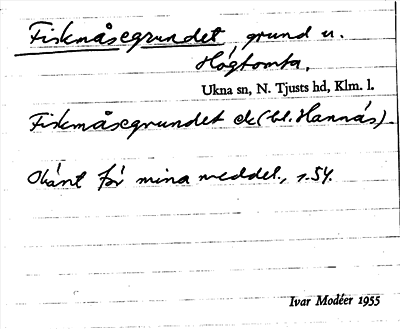 Fiskmåsegrundet grund u.
Högtomta.
Ukna sn, N. Tjusts hd, Klm. l.
Fiskmåsegrundet ek (bl. Hannäs).
Okänt för mina meddel., s. 54.
Ivar Modéer 1955